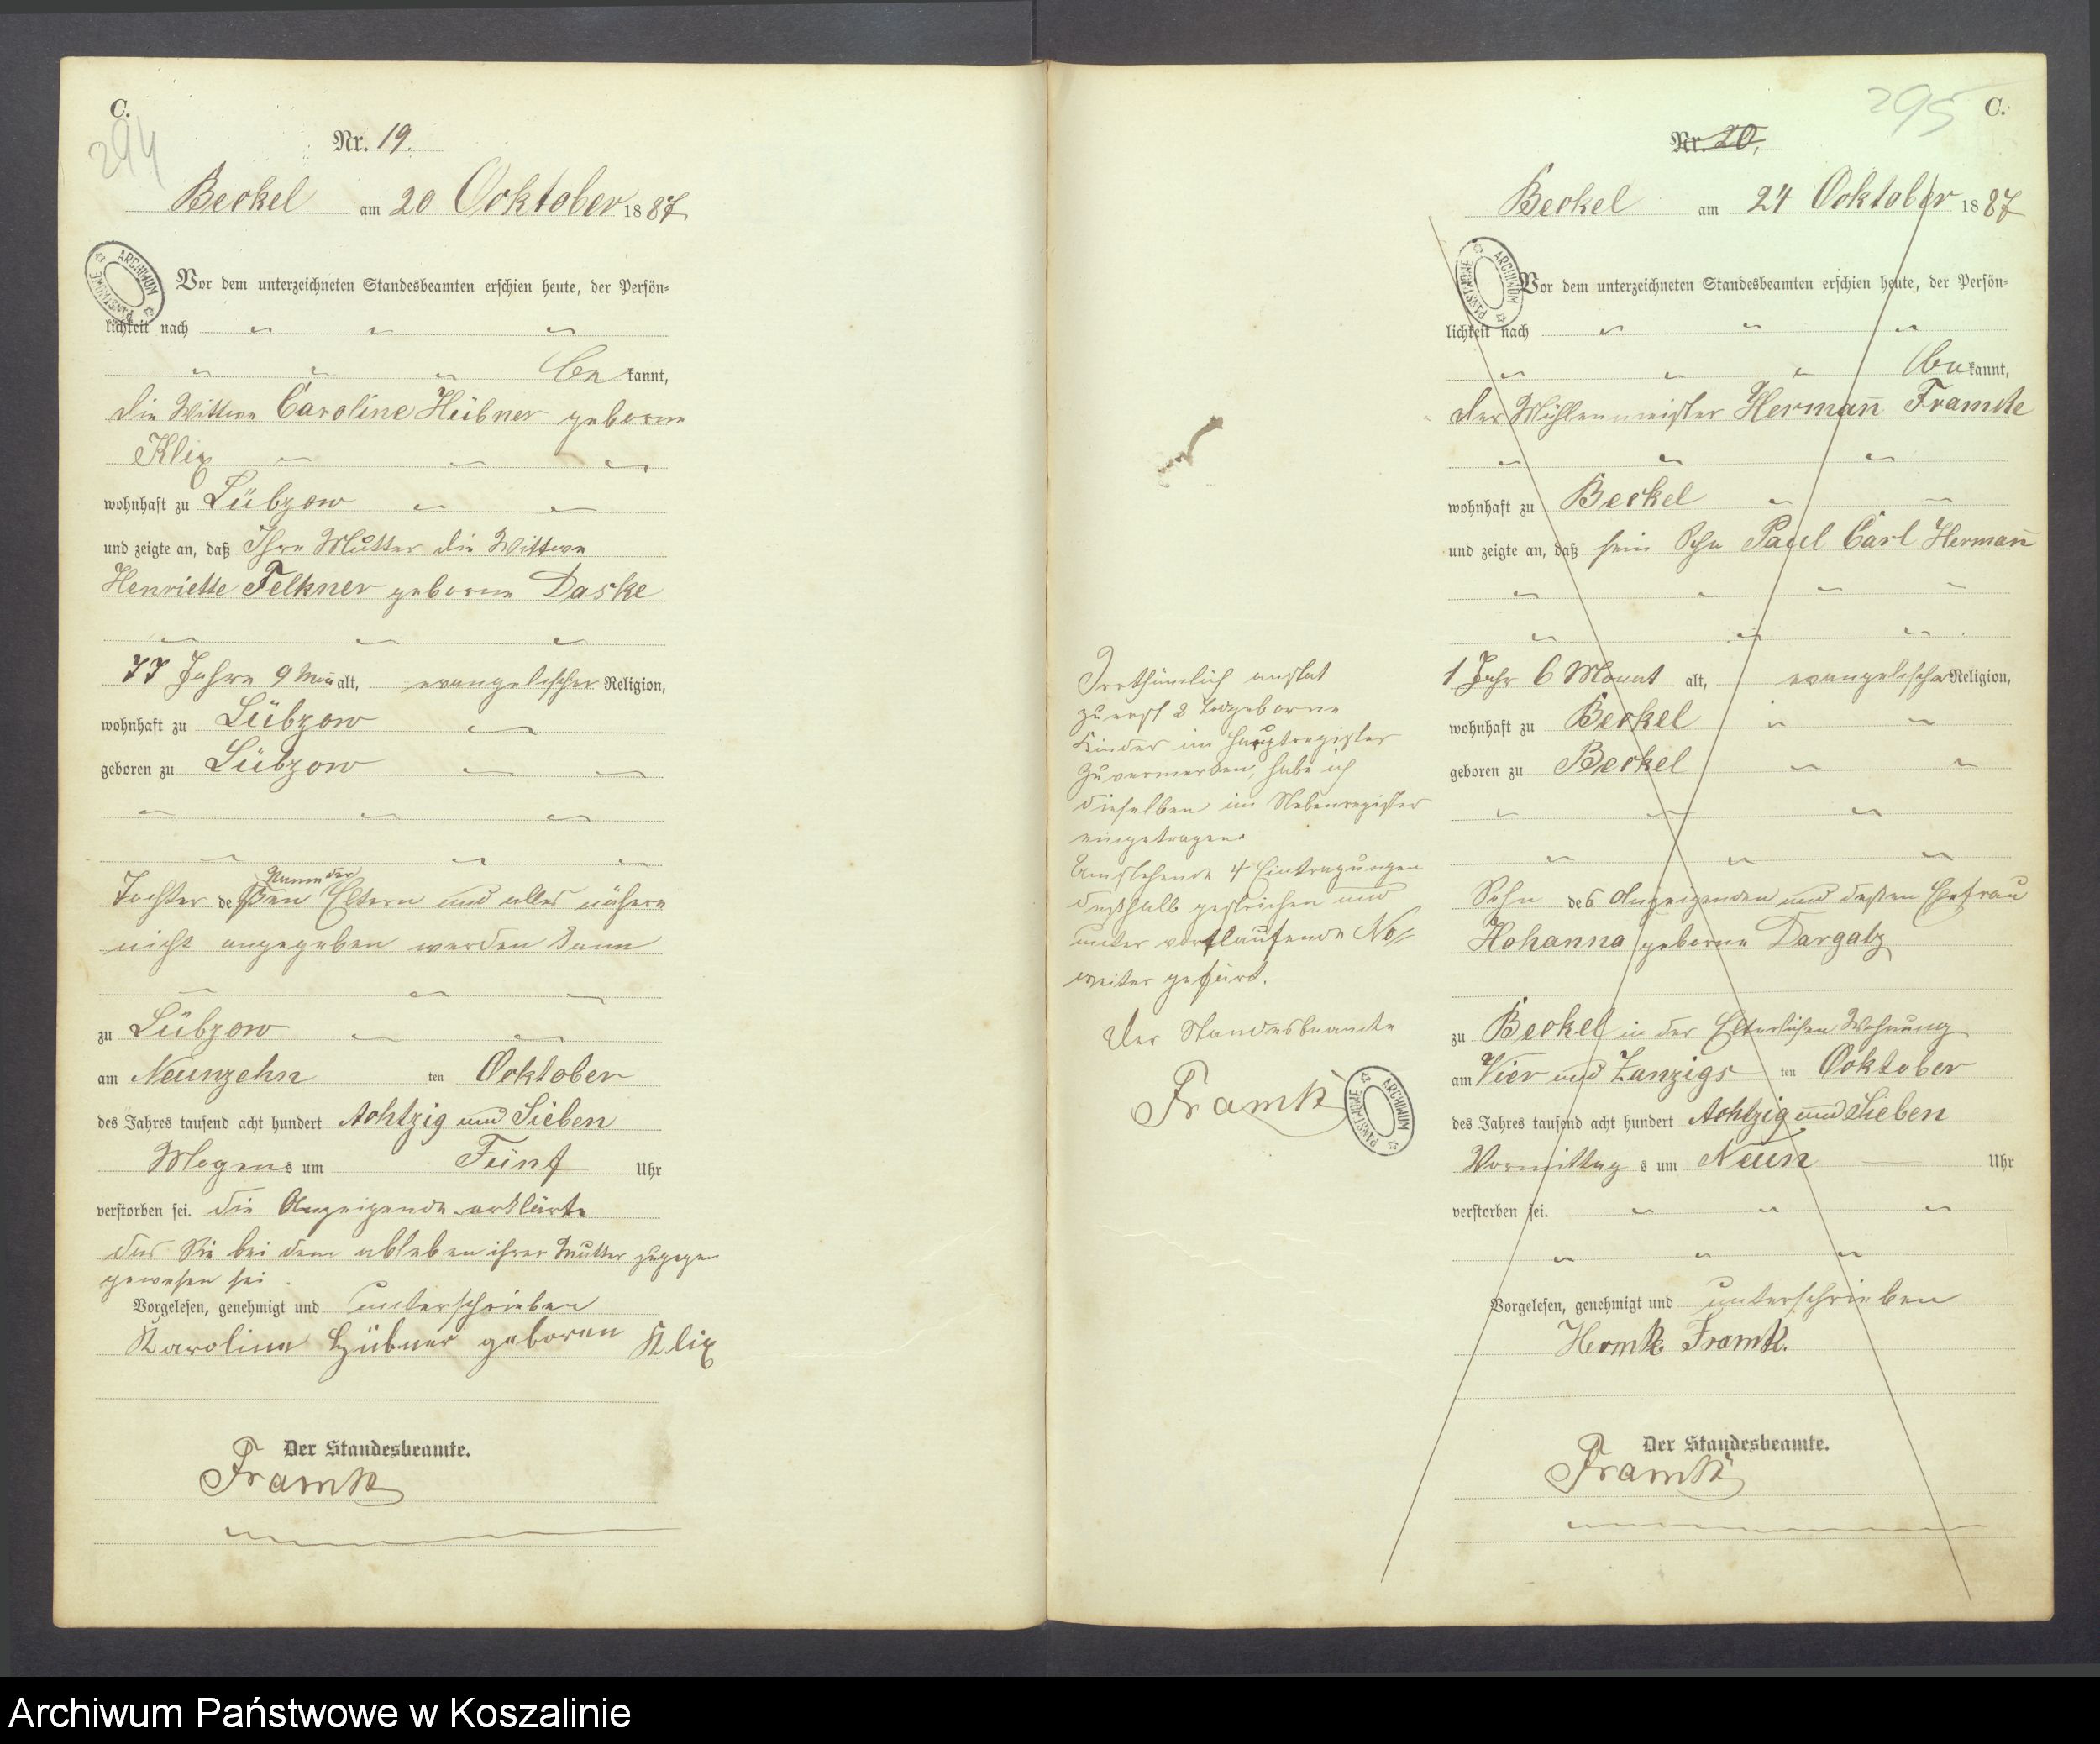 C.
294
Nr. 19.
Beckel am 20 Ocktober 1887
Vor dem unterzeichneten Standesbeamten erschien heute, der Persön-
lichkeit nach
bekannt,
die Wittwe Caroline Hübner geborne
Klix
wohnhaft zu Lübzow
und zeigte an, daß Ihre Mutter die Wittwe
Henriette Felkner geborne Daske
77 Jahre 9 Mon alt, evangelischer Religion,
wohnhaft zu Lübzow
geboren zu Lübzow
Namen der
Tochter deßen Eltern und alles nähere
nicht angegeben werden kann
zu Lübzow
am Neunzehn ten Ocktober
des Jahres tausend acht hundert Achtzig und Sieben
Mogens um Fünf Uhr
verstorben sei. die Anzeigende erklärte
das Sie bei dem ableben ihrer Mutter zugegen
gewesen sei.
Vorgelesen, genehmigt und unterschrieben
Karoline Hübner geboren Klix
Der Standesbeamte.
Framke
ARCHIWUM PAŃSTWOWE
295
C.
Nr. 20.
Beckel am 24 Ocktober 1887
Vor dem unterzeichneten Standesbeamten erschien heute, der Persön-
lichkeit nach
bekannt,
der Mühlenmeister Hermañ Framke
wohnhaft zu Beckel
und zeigte an, daß sein Sohn Paul Carl Hermañ
1 Jahr 6 Monat alt, evangelischer Religion,
wohnhaft zu Beckel
geboren zu Beckel
Sohn des Anzeigenden und deßen Ehefrau
Hohanna geborne Dargatz
zu Beckel in der Elterlichen Wohnung
am Vier und Zanzigs ten Ocktober
des Jahres tausend acht hundert Achtzig und Sieben
Vormittag s um Neun Uhr
verstorben sei.
Vorgelesen, genehmigt und unterschrieben
Framk.
Der Standesbeamte.
Framke
ARCHIWUM PAŃSTWOWE
Irrthümlich anstat
zuerst 2 Todgeborne
Kinder im Hauptregister
zu vermerken, habe ich
dieselben im Nebenregister
eingetragen.
Umstehende 4 Eintragungen
deßhalb gestrichen und
unter vortlaufende No
weiter gefürt.
Der Standesbeamte
Framke
ARCHIWUM PAŃSTWOWE
Archiwum Państwowe w Koszalinie